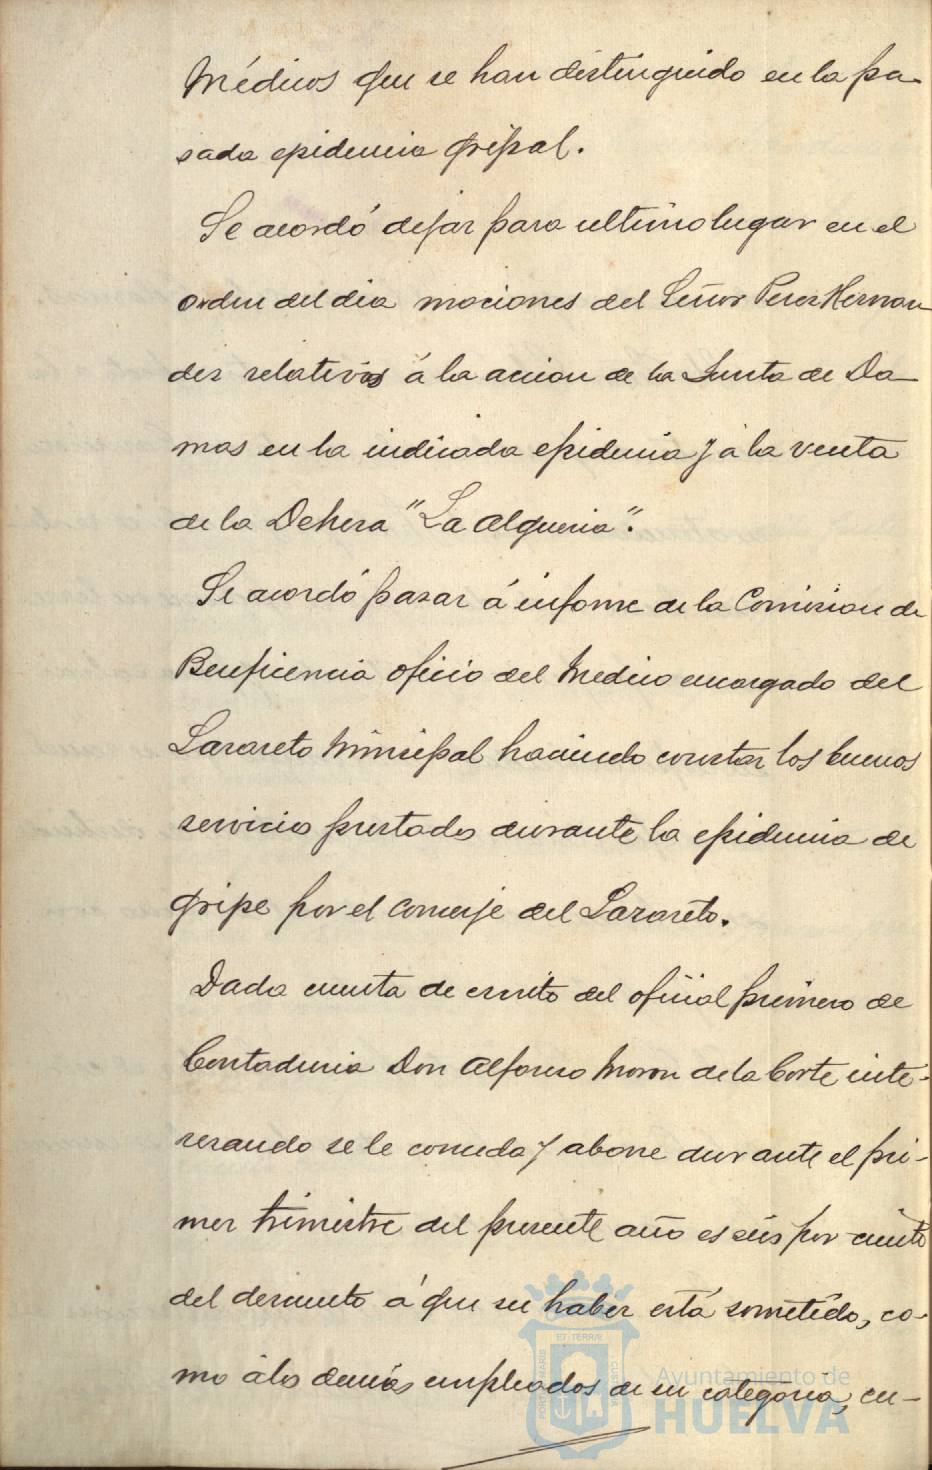 Médicos que se han distinguido en la pa-
sada epidemia gripal.
Se acordó dejar para ultimo lugar en el
orden del dia mociones del Señor Perez Hernan
dez relativas á la accion de la Junta de Da-
mas en la indicada epidemia y á la venta
de la Dehesa "La Alqueria".
Se acordó pasar á informe de la Comision de
Beneficencia oficio del Medico encargado del
Lazareto Municipal haciendo constar los buenos
servicio prestados durante la epidemia de
gripe por el Conserje del Lazareto.
Dada cuenta de escrito del oficial primero de
Contaduria Don Alfonso Moron de la Corte inte-
resando se le conceda y abone durante el pri-
mer trimestre del presente año es seis por ciento
del descuento á que su haber está sometido, co-
mo á los demás empleados de su categoria, cu-
Ayuntamiento de
HUELVA